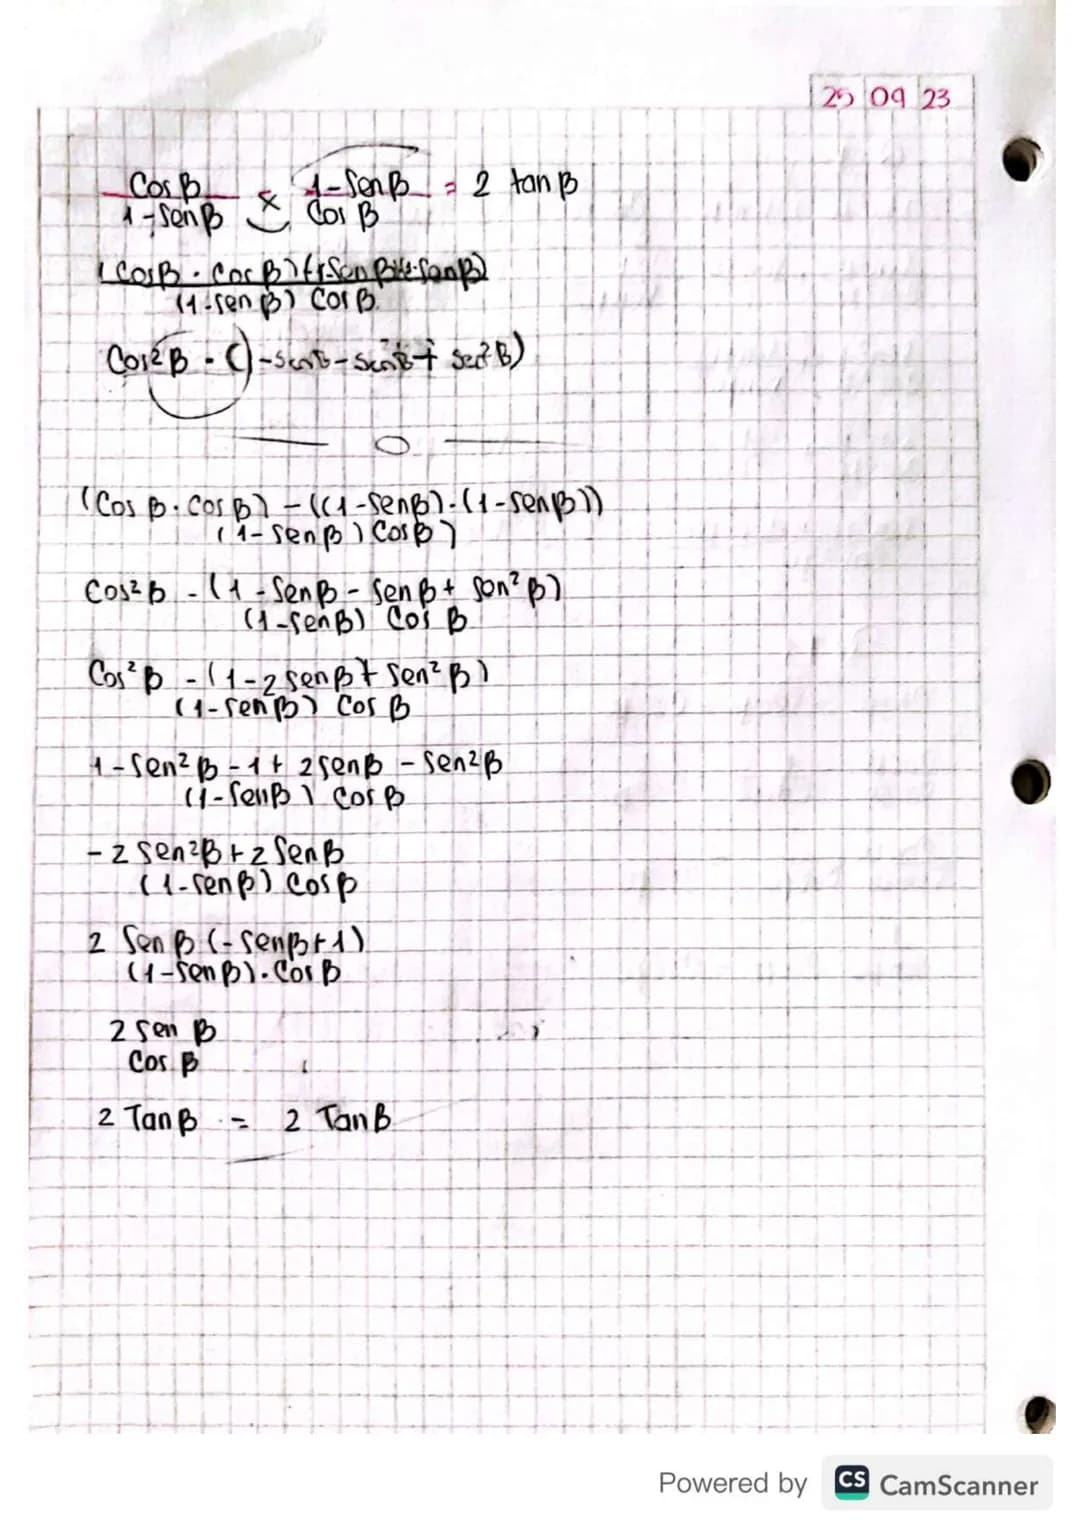 25 09 23
Cos β / 1-Sen β × 1-Sen β / Cos β = 2 tan β
(1-sen β) Cos β
Cos² β - (
(Cos β . Cos β) - ((1-Sen β) . (1-Sen β))
(1-Sen β) Cos β)
Cos² β - (1 - Sen β - Sen β + Sen² β)
(1-Sen β) Cos β
Cos² β - (1-2 Sen β + Sen² β)
(1-Sen β) Cos β
1 - Sen² β - 1 + 2 Sen β - Sen² β
(1-Sen β) Cos β
- 2 Sen² β + 2 Sen β
(1-Sen β) Cos β
2 Sen β (-Sen β + 1)
(1-Sen β) . Cos β
2 Sen β
Cos β
2 Tan β = 2 Tan β
Powered by CS CamScanner